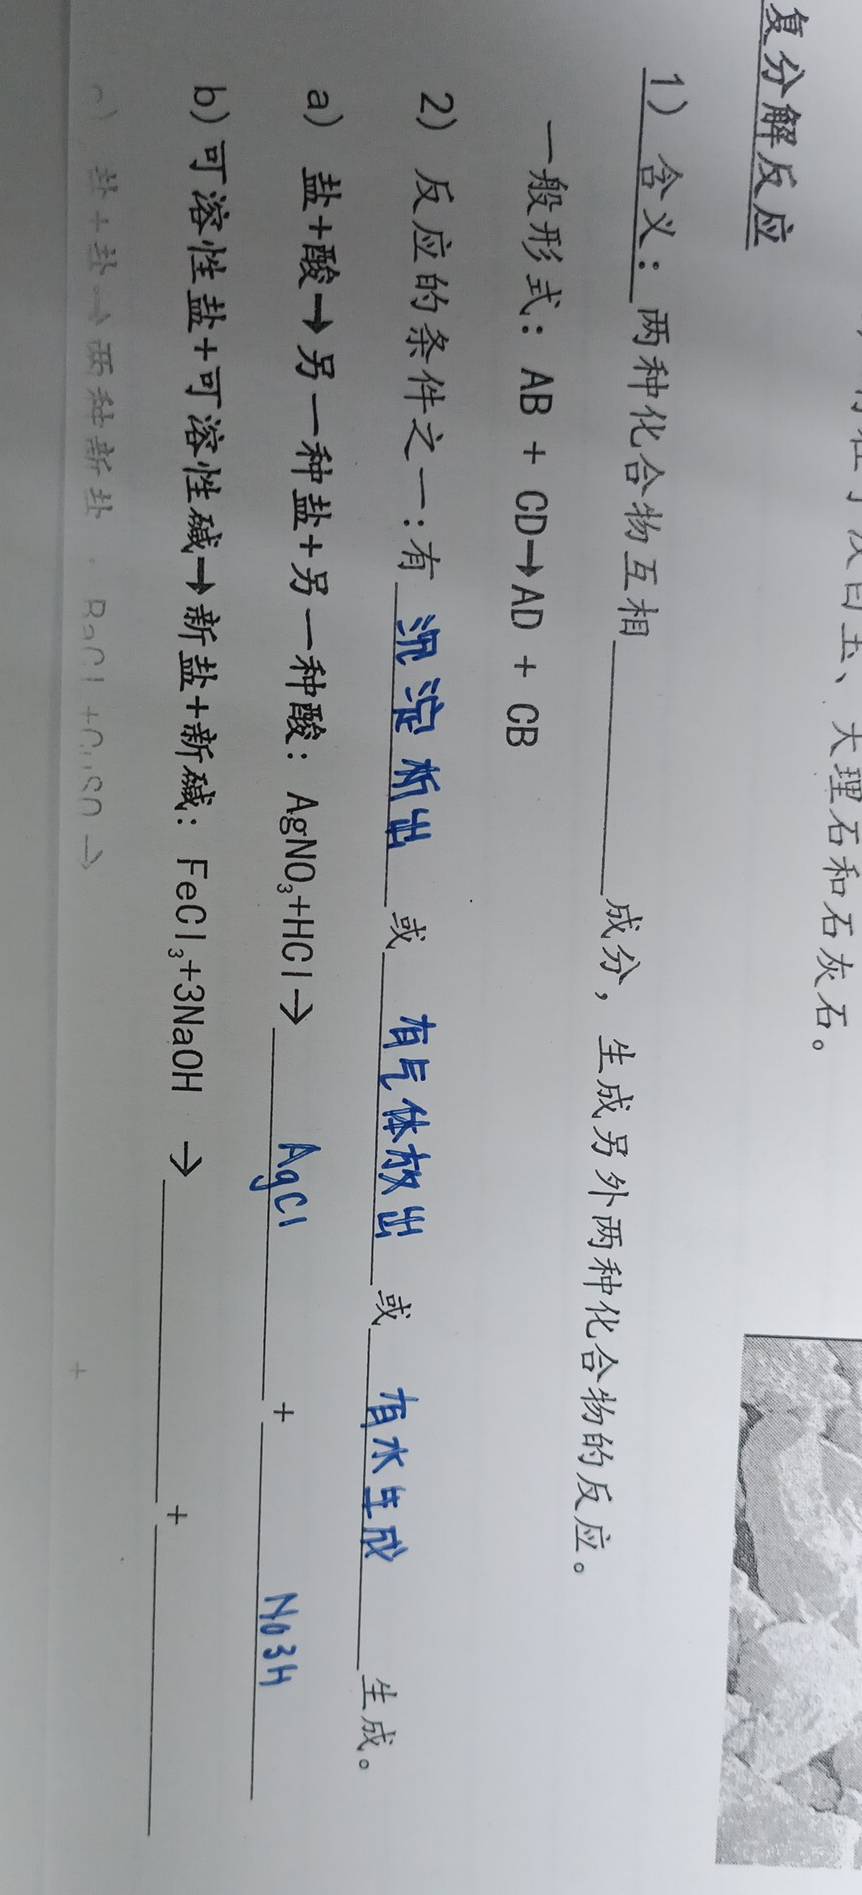 大理石和石灰石。
复分解反应
1) 含义:两种化合物互相________成分,生成另外两种化合物的反应。
一般形式:AB + CD→AD + CB
2) 反应的条件之一:有 沉淀析出 或 有气体放出 或 有水生成 生成。
a) 盐+酸→另一种盐+另一种酸:AgNO₃+HCl→ AgCl + No3H
b)可溶性盐+可溶性碱→新盐+新碱:FeCl₃+3NaOH →________+________
盐+盐→两种新盐